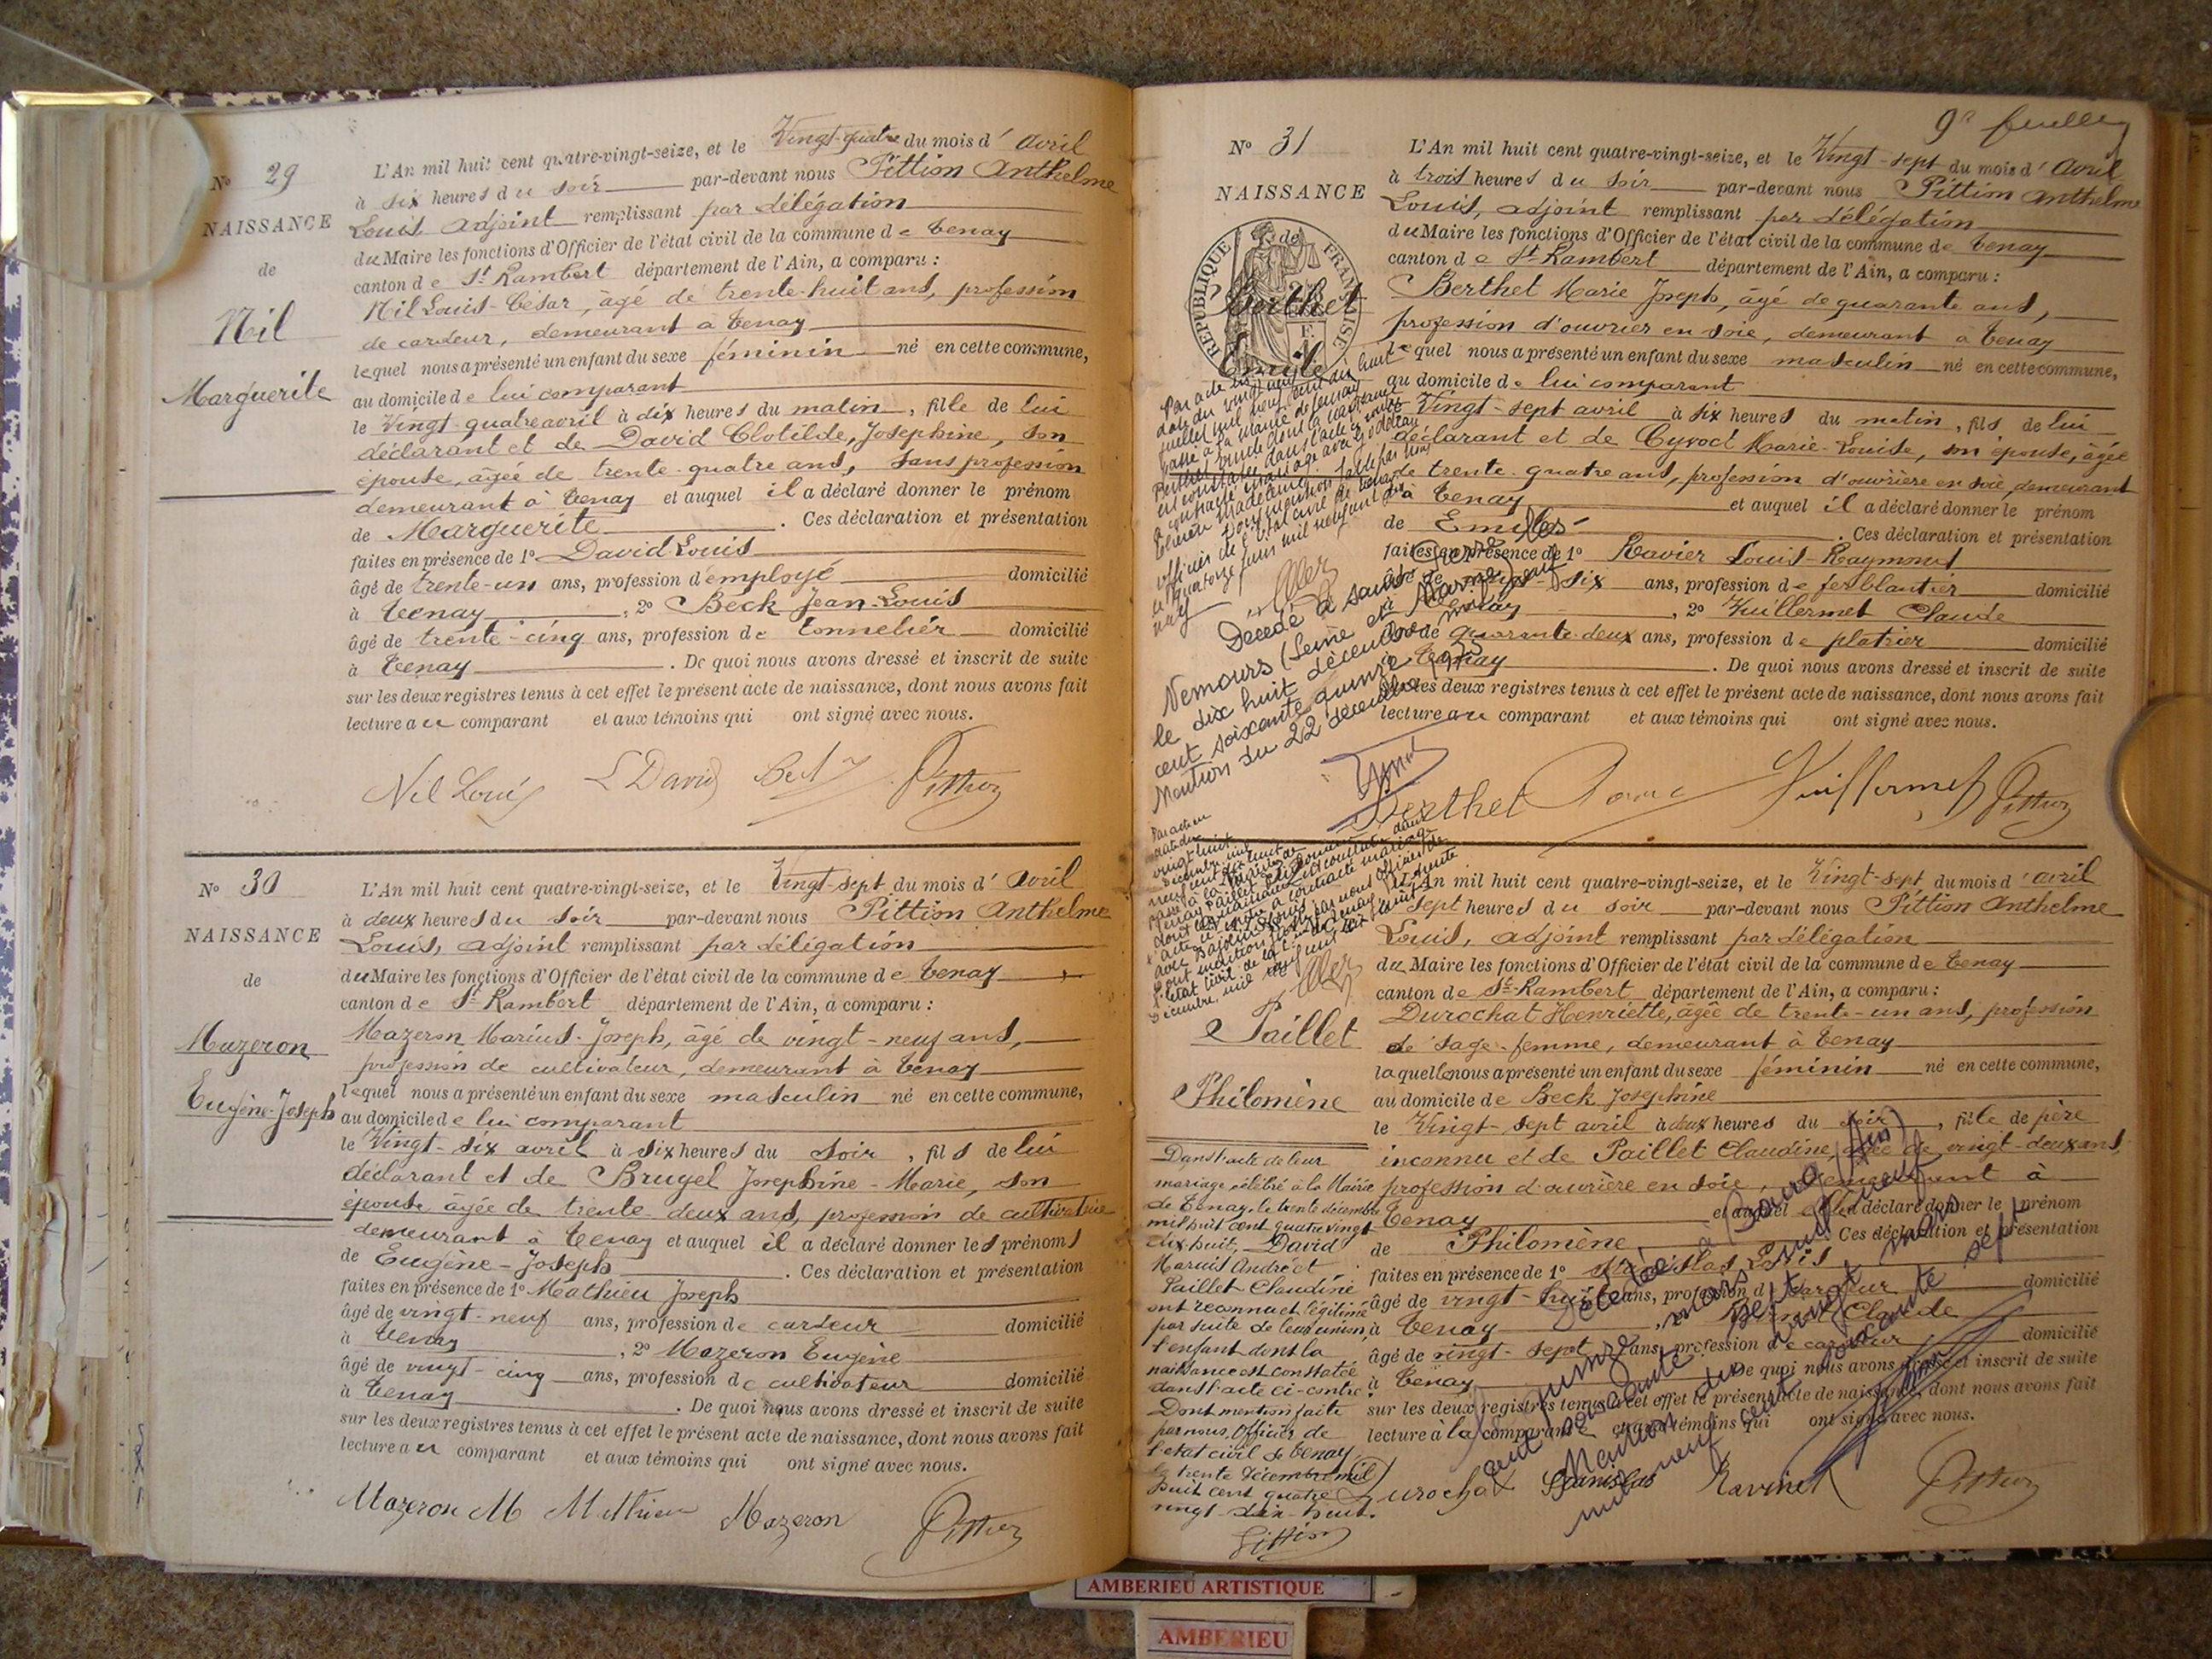 No 29
NAISSANCE
de
Nil
Marguerite
L'An mil huit cent quatre-vingt-seize, et le Vingt-quatre du mois d' avril
à six heures du soir par-devant nous Pittion Anthelme
Louis, adjoint remplissant par délégation
du Maire les fonctions d'Officier de l'état civil de la commune de Tenay
canton de St Rambert département de l'Ain, a comparu :
Nil Louis-César, âgé de trente-huit ans, profession
de cardeur, demeurant à Tenay
lequel nous a présenté un enfant du sexe féminin né en cette commune,
au domicile de lui comparant
le Vingt-quatre avril à dix heures du matin, fille de lui
déclarant et de David Clotilde, Josephine, son
épouse, âgée de trente-quatre ans, sans profession
demeurant à Tenay et auquel il a déclaré donner le prénom
de Marguerite. Ces déclaration et présentation
faites en présence de 1º David Louis
âgé de trente-un ans, profession d'employé domicilié
à Tenay, 2º Beck Jean-Louis
âgé de trente-cinq ans, profession de tonnelier domicilié
à Tenay. De quoi nous avons dressé et inscrit de suite
sur les deux registres tenus à cet effet le présent acte de naissance, dont nous avons fait
lecture au comparant et aux témoins qui ont signé avec nous.
Nil Louis L David Beck Pittion
No 30
NAISSANCE
de
Mazeron
Eugène-Joseph
L'An mil huit cent quatre-vingt-seize, et le Vingt-sept du mois d' avril
à deux heures du soir par-devant nous Pittion Anthelme
Louis, adjoint remplissant par délégation
du Maire les fonctions d'Officier de l'état civil de la commune de Tenay
canton de St Rambert département de l'Ain, a comparu :
Mazeron Marius-Joseph, âgé de vingt-neuf ans,
profession de cultivateur, demeurant à Tenay
lequel nous a présenté un enfant du sexe masculin né en cette commune,
au domicile de lui comparant
le Vingt-six avril à six heures du soir, fils de lui
déclarant et de Brugel Josephine-Marie, son
épouse âgée de trente-deux ans, profession de cultivatrice
demeurant à Tenay et auquel il a déclaré donner les prénoms
de Eugène-Joseph. Ces déclaration et présentation
faites en présence de 1º Mathieu Joseph
âgé de vingt-neuf ans, profession de cardeur domicilié
à Tenay, 2º Mazeron Eugène
âgé de vingt-cinq ans, profession de cultivateur domicilié
à Tenay. De quoi nous avons dressé et inscrit de suite
sur les deux registres tenus à cet effet le présent acte de naissance, dont nous avons fait
lecture au comparant et aux témoins qui ont signé avec nous.
Mazeron M Mathieu Mazeron Pittion
9e feuillet
No 31
NAISSANCE
de
RÉPUBLIQUE FRANÇAISE
Berthet
Emile
L'An mil huit cent quatre-vingt-seize, et le Vingt-sept du mois d' avril
à trois heures du soir par-devant nous Pittion Anthelme
Louis, adjoint remplissant par délégation
du Maire les fonctions d'Officier de l'état civil de la commune de Tenay
canton de St Rambert département de l'Ain, a comparu :
Berthet Marie Joseph, âgé de quarante ans,
profession d'ouvrier en soie, demeurant à Tenay
lequel nous a présenté un enfant du sexe masculin né en cette commune,
au domicile de lui comparant
le Vingt-sept avril à six heures du matin, fils de lui
déclarant et de Cyvoct Marie-Louise, son épouse, âgée
de trente-quatre ans, profession d'ouvrière en soie, demeurant
à Tenay et auquel il a déclaré donner le prénom
de Emile. Ces déclaration et présentation
faites en présence de 1º Ravier Louis-Raymond
âgé de six ans, profession de ferblantier domicilié
à Tenay, 2º Vuillermet Claude
âgé de quarante-deux ans, profession de platrier domicilié
à Tenay. De quoi nous avons dressé et inscrit de suite
sur les deux registres tenus à cet effet le présent acte de naissance, dont nous avons fait
lecture au comparant et aux témoins qui ont signé avec nous.
Décédé à Saint Pierre les
Nemours (Seine et Marne)
le dix huit décembre mil neuf
cent soixante quinze
Mention du 22 décembre 1975
Berthet Vuillermet Pittion
Paillet
Philomène
L'An mil huit cent quatre-vingt-seize, et le Vingt-sept du mois d' avril
à sept heures du soir par-devant nous Pittion Anthelme
Louis, adjoint remplissant par délégation
du Maire les fonctions d'Officier de l'état civil de la commune de Tenay
canton de St-Rambert département de l'Ain, a comparu :
Durochat Henriette, âgée de trente-un ans, profession
de sage-femme, demeurant à Tenay
laquelle nous a présenté un enfant du sexe féminin né en cette commune,
au domicile de Beck Josephine
le Vingt-sept avril à deux heures du soir, fille de père
inconnu et de Paillet Claudine, âgée de vingt-deux ans,
profession d'ouvrière en soie, demeurant à
Tenay et auquel elle a déclaré donner le prénom
de Philomène. Ces déclaration et présentation
faites en présence de 1º Stanislas
âgé de vingt-huit ans, profession de cardeur domicilié
à Tenay, Claude
âgé de vingt-sept ans, profession de cardeur domicilié
à Tenay. De quoi nous avons dressé et inscrit de suite
sur les deux registres tenus à cet effet le présent acte de naissance, dont nous avons fait
lecture à la comparante et aux témoins qui ont signé avec nous.
Dans l'acte de leur
mariage, célébré à la Mairie
de Tenay, le trente décembre
mil huit cent quatre vingt
dix-huit, David
Marius André et
Paillet Claudine
ont reconnu et légitimé
par suite de leur union,
l'enfant dont la
naissance est constatée
dans l'acte ci-contre.
Dont mention faite
par nous, Officier de
l'état civil de Tenay,
le trente décembre mil
huit cent quatre
vingt-dix-huit.
Pittion
Décédée à Bourg (Ain)
le quinze mars mil neuf
cent soixante sept
Mention du vingt mars
mil neuf cent soixante sept
Durochat Stanislas Ravinet Pittion
AMBERIEU ARTISTIQUE
AMBERIEU